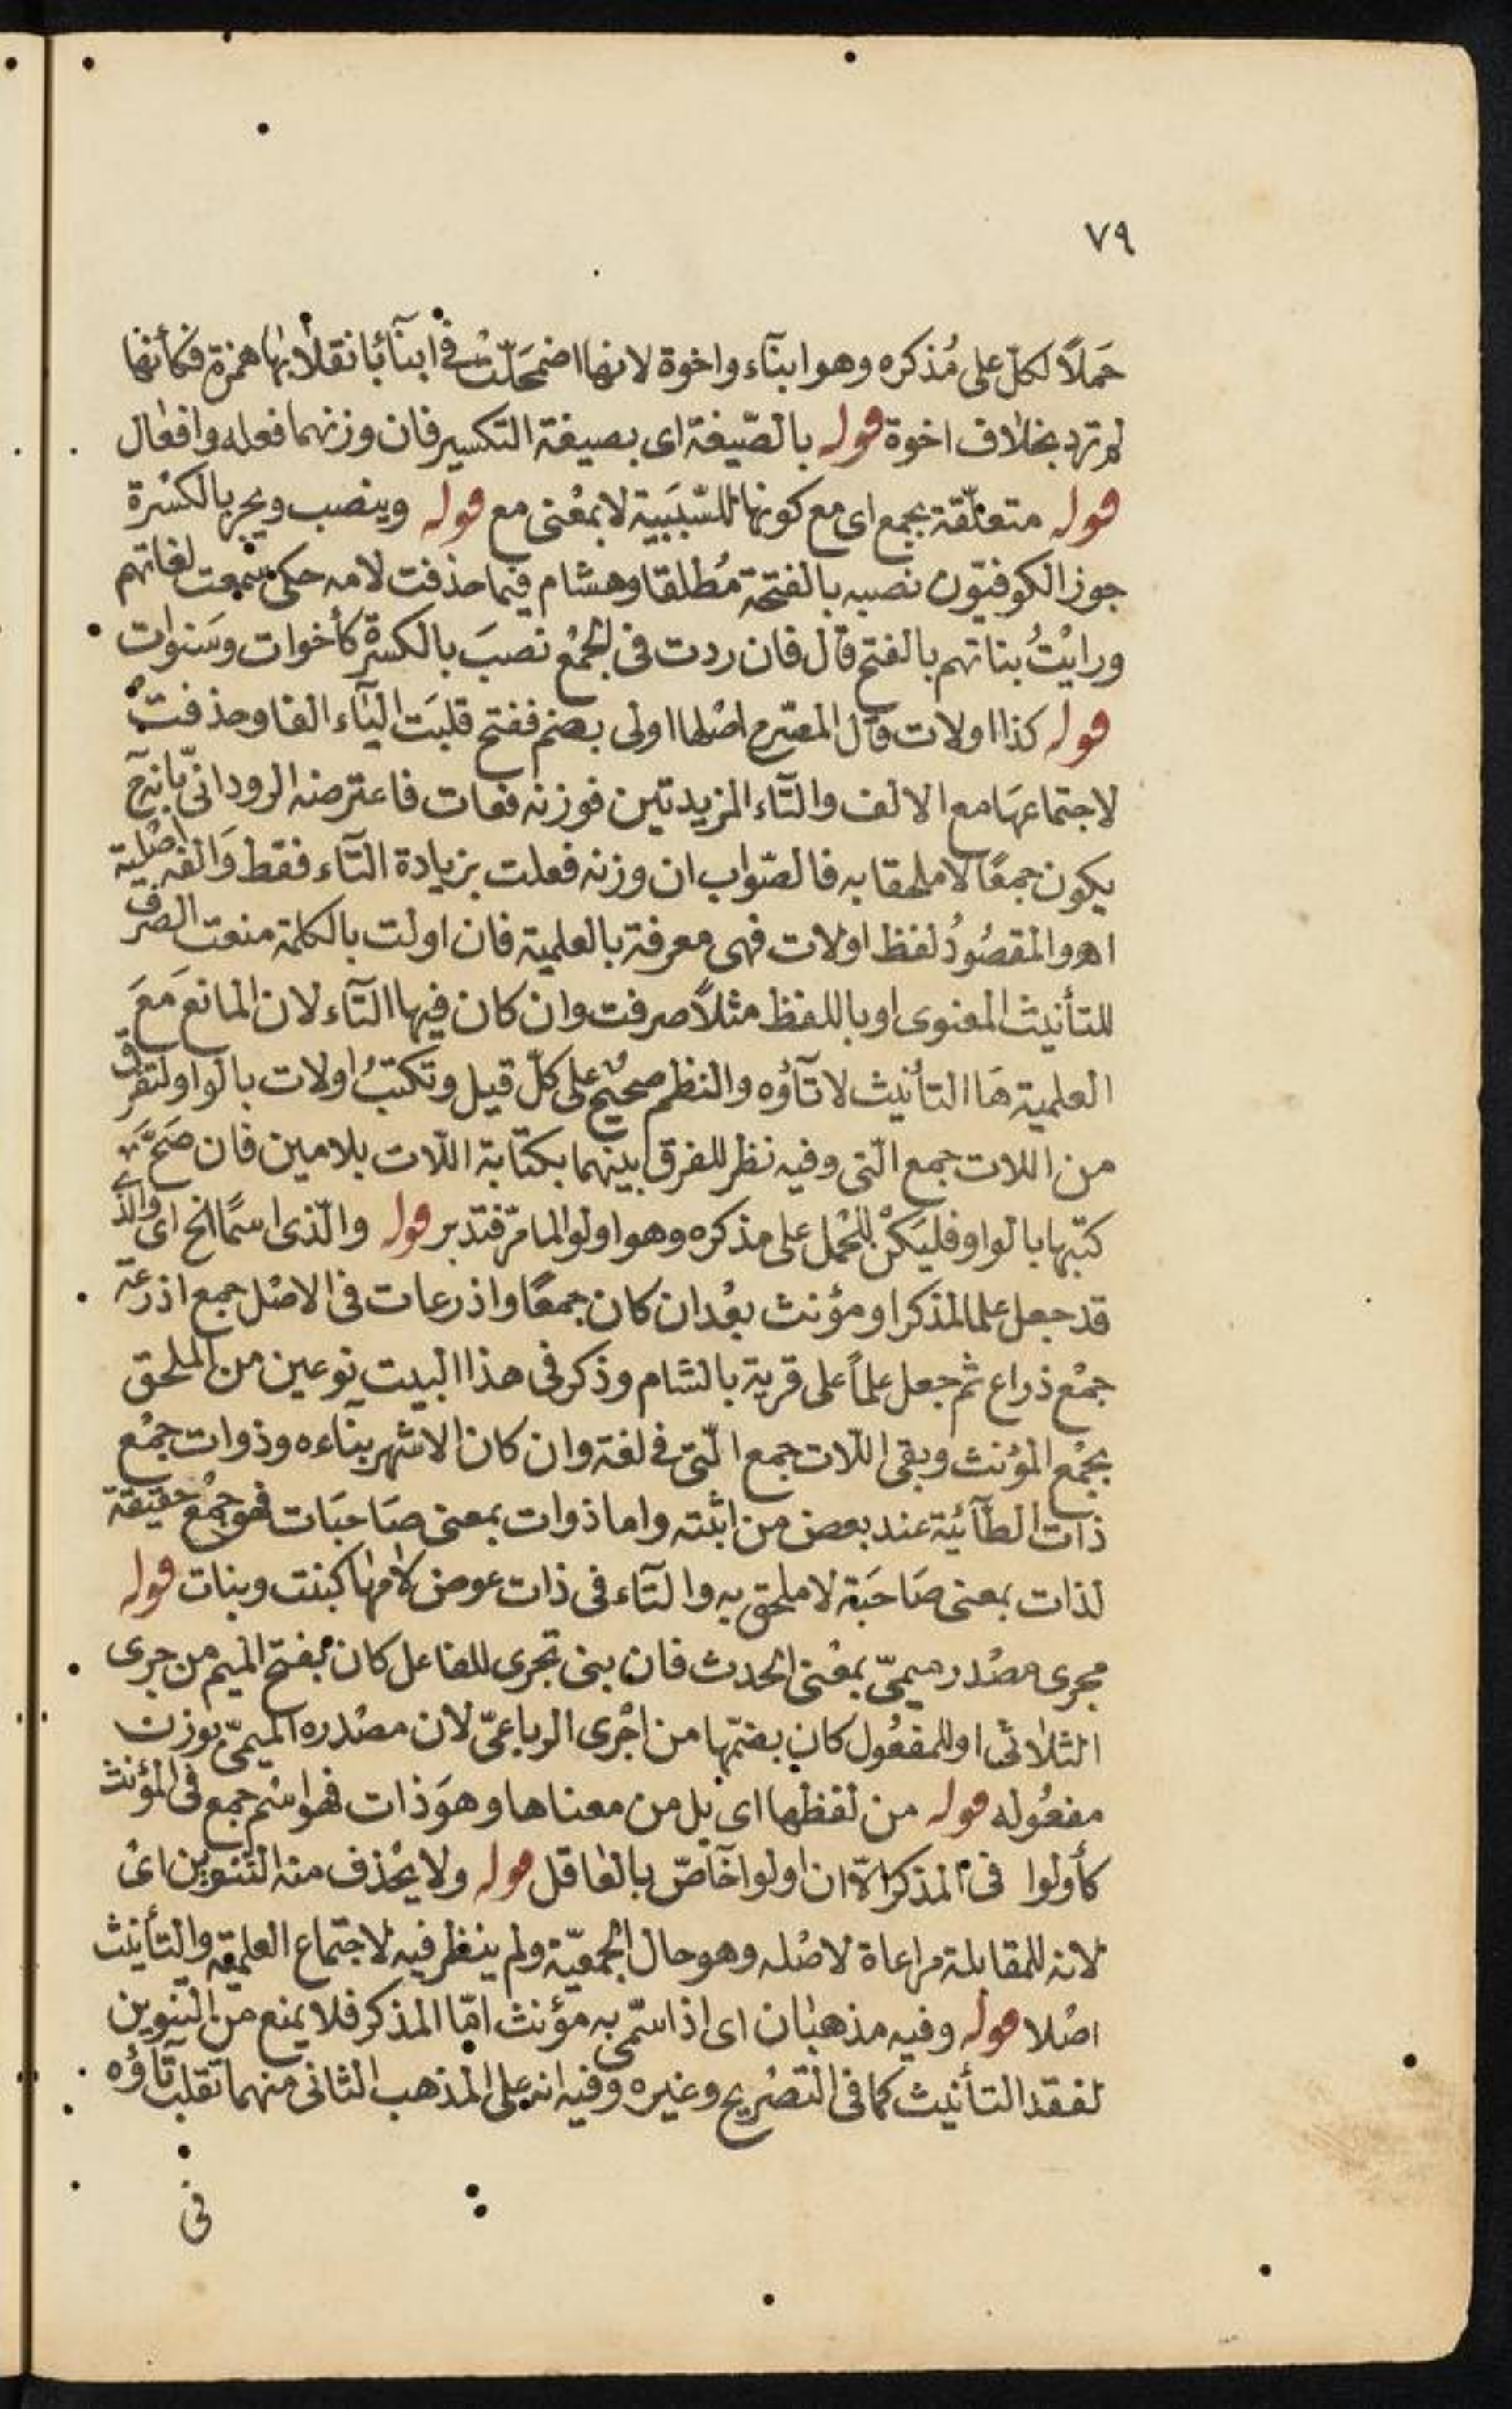 ٧٩
حَملاً لكلّ على مُذكره وهو ابنآء واخوة لانها اضمحَلّتْ في ابنآئبا نقلابها همزة فكأنها
لم ترد بخلاف اخوة قوله بالصّيغة اى بصيغة التكسير فان وزنهما فعله وافعال
قوله متعلّقة بجمع اى مع كونها للسّبَبَية لا بمعْنى مع قوله وينصب ويجر بالكسْرة
جوز الكوفيّون نصبه بالفتحة مُطلقا وهشام فيما حذفت لامه حكى سمعت لغاتهم
ورايْتُ بناتهم بالفتح قال فان ردت فى الجمْع نصبَ بالكسرة كأخوات وسَنوات
قوله كذا اولات قال المصّرح اصْلها اولى بضم ففتح قلبَت اليآء الفا وحذفت
لاجتماعهَا مع الالف والتآء المزيدتين فوزنه فعات فاعترضه الرودانىّ بانه ح
يكون جمعًا لا ملحقا به فالصّواب ان وزنه فعلت بزيادة التآء فقط وَالفه اصْلية
اهـ والمقصُودُ لفظ اولات فهى معرفة بالعلمية فان اولت بالكلمة منعت الصرف
للتأنيث المعنوى او باللفظ مثلاً صرفت وان كان فيها التآء لان المانع مَعَ
العلمية هَا التأنيث لا تآؤه والنظم صحيْح على كلّ قيل وتكتبُ اولات بالواو لتفرق
من اللات جمع الّتى وفيه نظر للفرق بينهما بكتابة اللّات بلامين فان صَحَّ
كتبها بالواو فليَكنْ للحْمل على مذكره وهو اولوا لما مرّ فتدبر قوله والّذى اسمًا الخ اى والذى
قد جعل علما لمذكر او مؤنث بعْد ان كان جمعًا واذرعات فى الاصْل جمع اذرعة
جمْع ذراع ثم جعل علماً على قرية بالشام وذكر فى هذا البيت نوعين من الملحق
بجمْع المؤنث وبقى اللّات جمع الّتى في لغة وان كان الاشهر بناءه وذوات جمْع
ذات الطآئية عند بعض من اثبته واما ذوات بمعنى صَاحبَات فهو جمْع حقيقة
لذات بمعنى صَاحبَة لا ملحق به والتآء فى ذات عوض لامها كبنت وبنات قوله
مجرى مصْدر ميمىّ بمعْنى الحدث فان بنى تجرى للفاعل كان بفتح الميم من جرى
الثلاثى او للمفعُول كان بضمّها من اجْرى الرباعىّ لان مصْدره الميمىّ بوزن
مفعُوله قوله من لفظها اى بل من معناها وهوَ ذات فهو اسْم جمع فى المؤنث
كأولوا فى المذكر الّا ان اولوا خاصّ بالعاقل قوله ولا يحْذف منه التنوين اىْ
لانه للمقابلة مراعاة لاصْله وهو حال الجمعيّة ولم ينظر فيه لاجتماع العلمية والتأنيث
اصْلا قوله وفيه مذهبان اى اذا سمّى به مؤنث امّا المذكر فلا يمنع من التنوين
لفقد التأنيث كما فى التصْريح وغيره وفيه انه على المذهب الثانى منهما تقلب تآؤه
فى